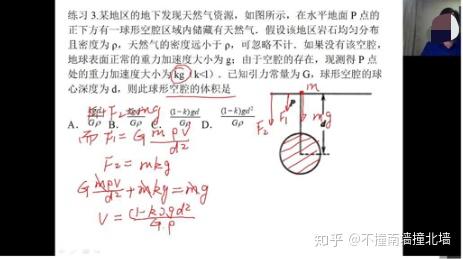 练习 3.某地区的地下发现天然气资源，如图所示，在水平地面 P 点的
正下方有一球形空腔区域内储藏有天然气．假设该地区岩石均匀分布
且密度为 ρ，天然气的密度远小于 ρ，可忽略不计．如果没有该空腔，
地球表面正常的重力加速度大小为 g；由于空腔的存在，现测得 P 点
处的重力加速度大小为 kg（k<1）．已知引力常量为 G，球形空腔的球
心深度为 d，则此球形空腔的体积是
A． B． C． (1-k)gd/Gρ D． (1-k)gd²/Gρ
F₂ mg
而 F₁ = G mρV/d²
F₂ = mkg
G mρV/d² + mkg = mg
V = (1-k)gd²/G·ρ
m
P
F₁
F₂
mg
d
知乎 @不撞南墙撞北墙